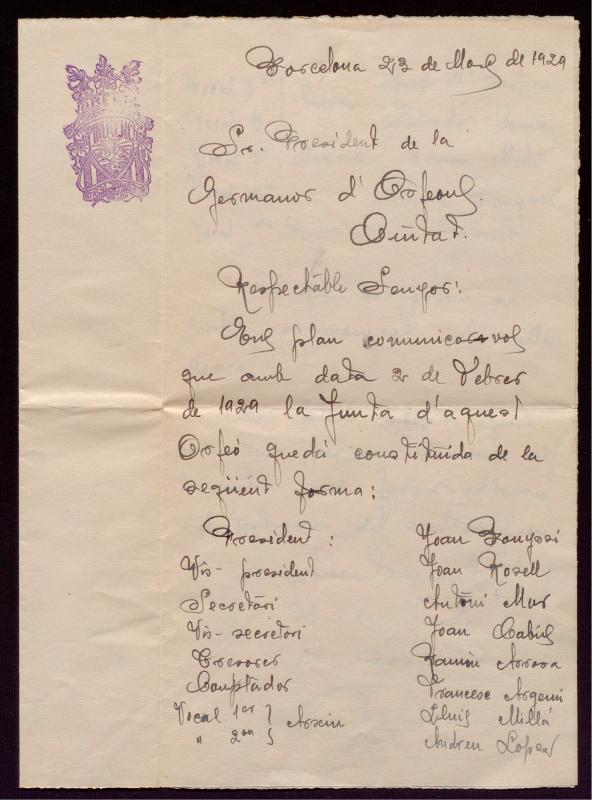 Barcelona 23 de Mars de 1929
Sr. President de la
Germanor d'Orfeons.
Ciutat.
Respectable Senyor:
Ens plau comunicar-vos
que amb data 2 de Febrer
de 1929 la Junta d'aquest
Orfeó quedà constituida de la
següent forma:
President : Joan
Vis-president Joan Rosell
Secretari Antoni Mur
Vis-secretori Joan
Tresorer Ramón
Comptador Francesc Argemi
Vocal 1er Lluis Millà
" 2on Andreu Lopez